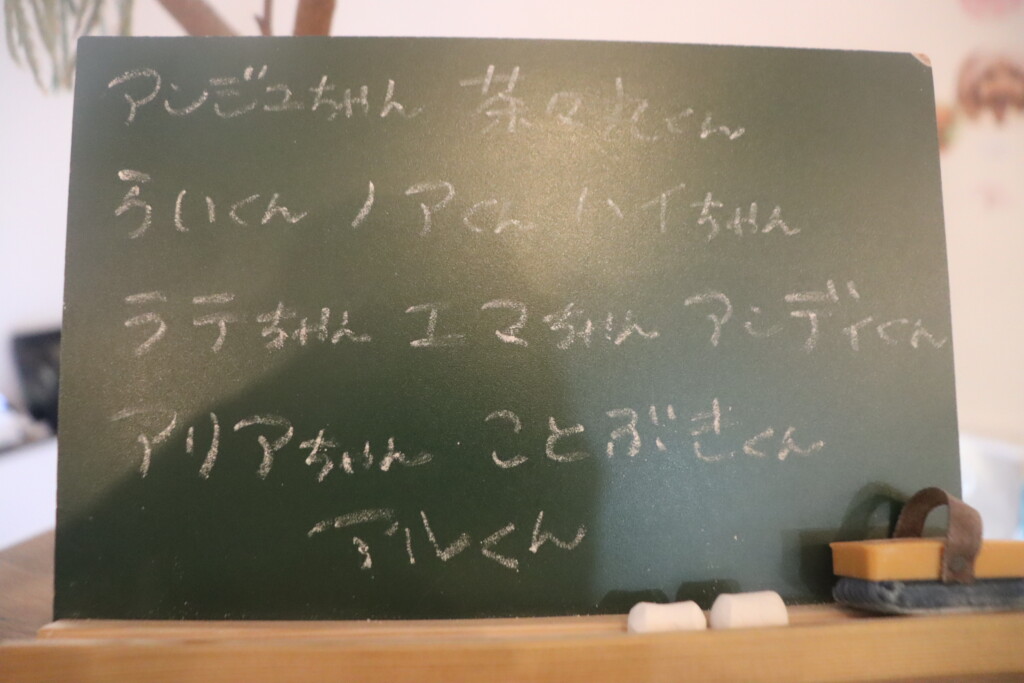 アンジュちゃん 茶々丸くん
ういくん ノアくん ハイちゃん
ラテちゃん エマちゃん アンディくん
アリアちゃん ことぶきくん
アルくん